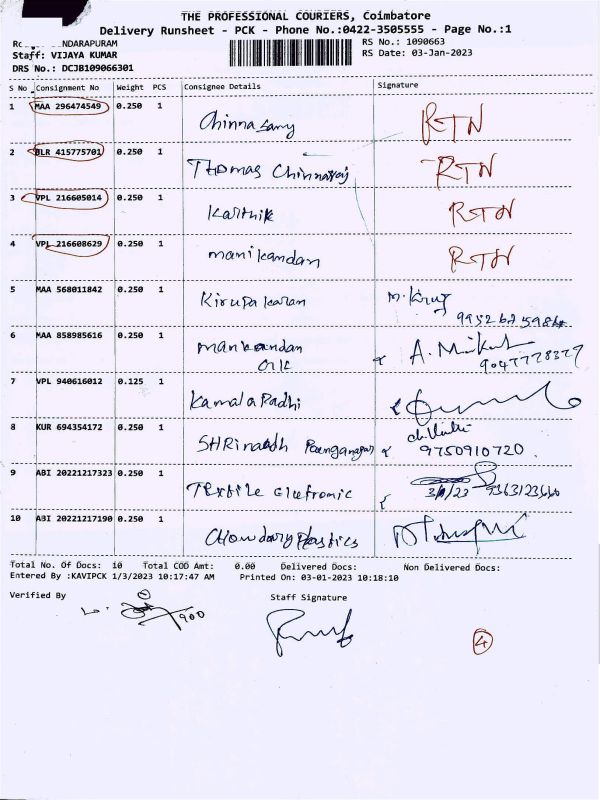 THE PROFESSIONAL COURIERS, Coimbatore
Delivery Runsheet - PCK - Phone No.:0422-3505555 - Page No.:1
NDARAPURAM RS No.: 1090663
Staff: VIJAYA KUMAR RS Date: 03-Jan-2023
DRS No.: DCJB109066301
S No Consignment No Weight PCS Consignee Details Signature
1 MAA 296474549 0.250 1 Chinnasamy RTN
2 BLR 415775701 0.250 1 Thomas Chinnaraj RTN
3 VPL 216605014 0.250 1 Karthik RTN
4 VPL 216608629 0.250 1 manikandan RTN
5 MAA 568011842 0.250 1 Kirupakaran
6 MAA 858985616 0.250 1 9047778377
7 VPL 940616012 0.125 1 Kamala Padhi
8 KUR 694354172 0.250 1 9750910720
9 ABI 20221217323 0.250 1 Textile 3/1/23
10 ABI 20221217190 0.250 1 Chowdary Plastics
Total No. Of Docs: 10 Total COD Amt: 0.00 Delivered Docs: Non Delivered Docs:
Entered By :KAVIPCK 1/3/2023 10:17:47 AM Printed On: 03-01-2023 10:18:10
Verified By Staff Signature
900
4